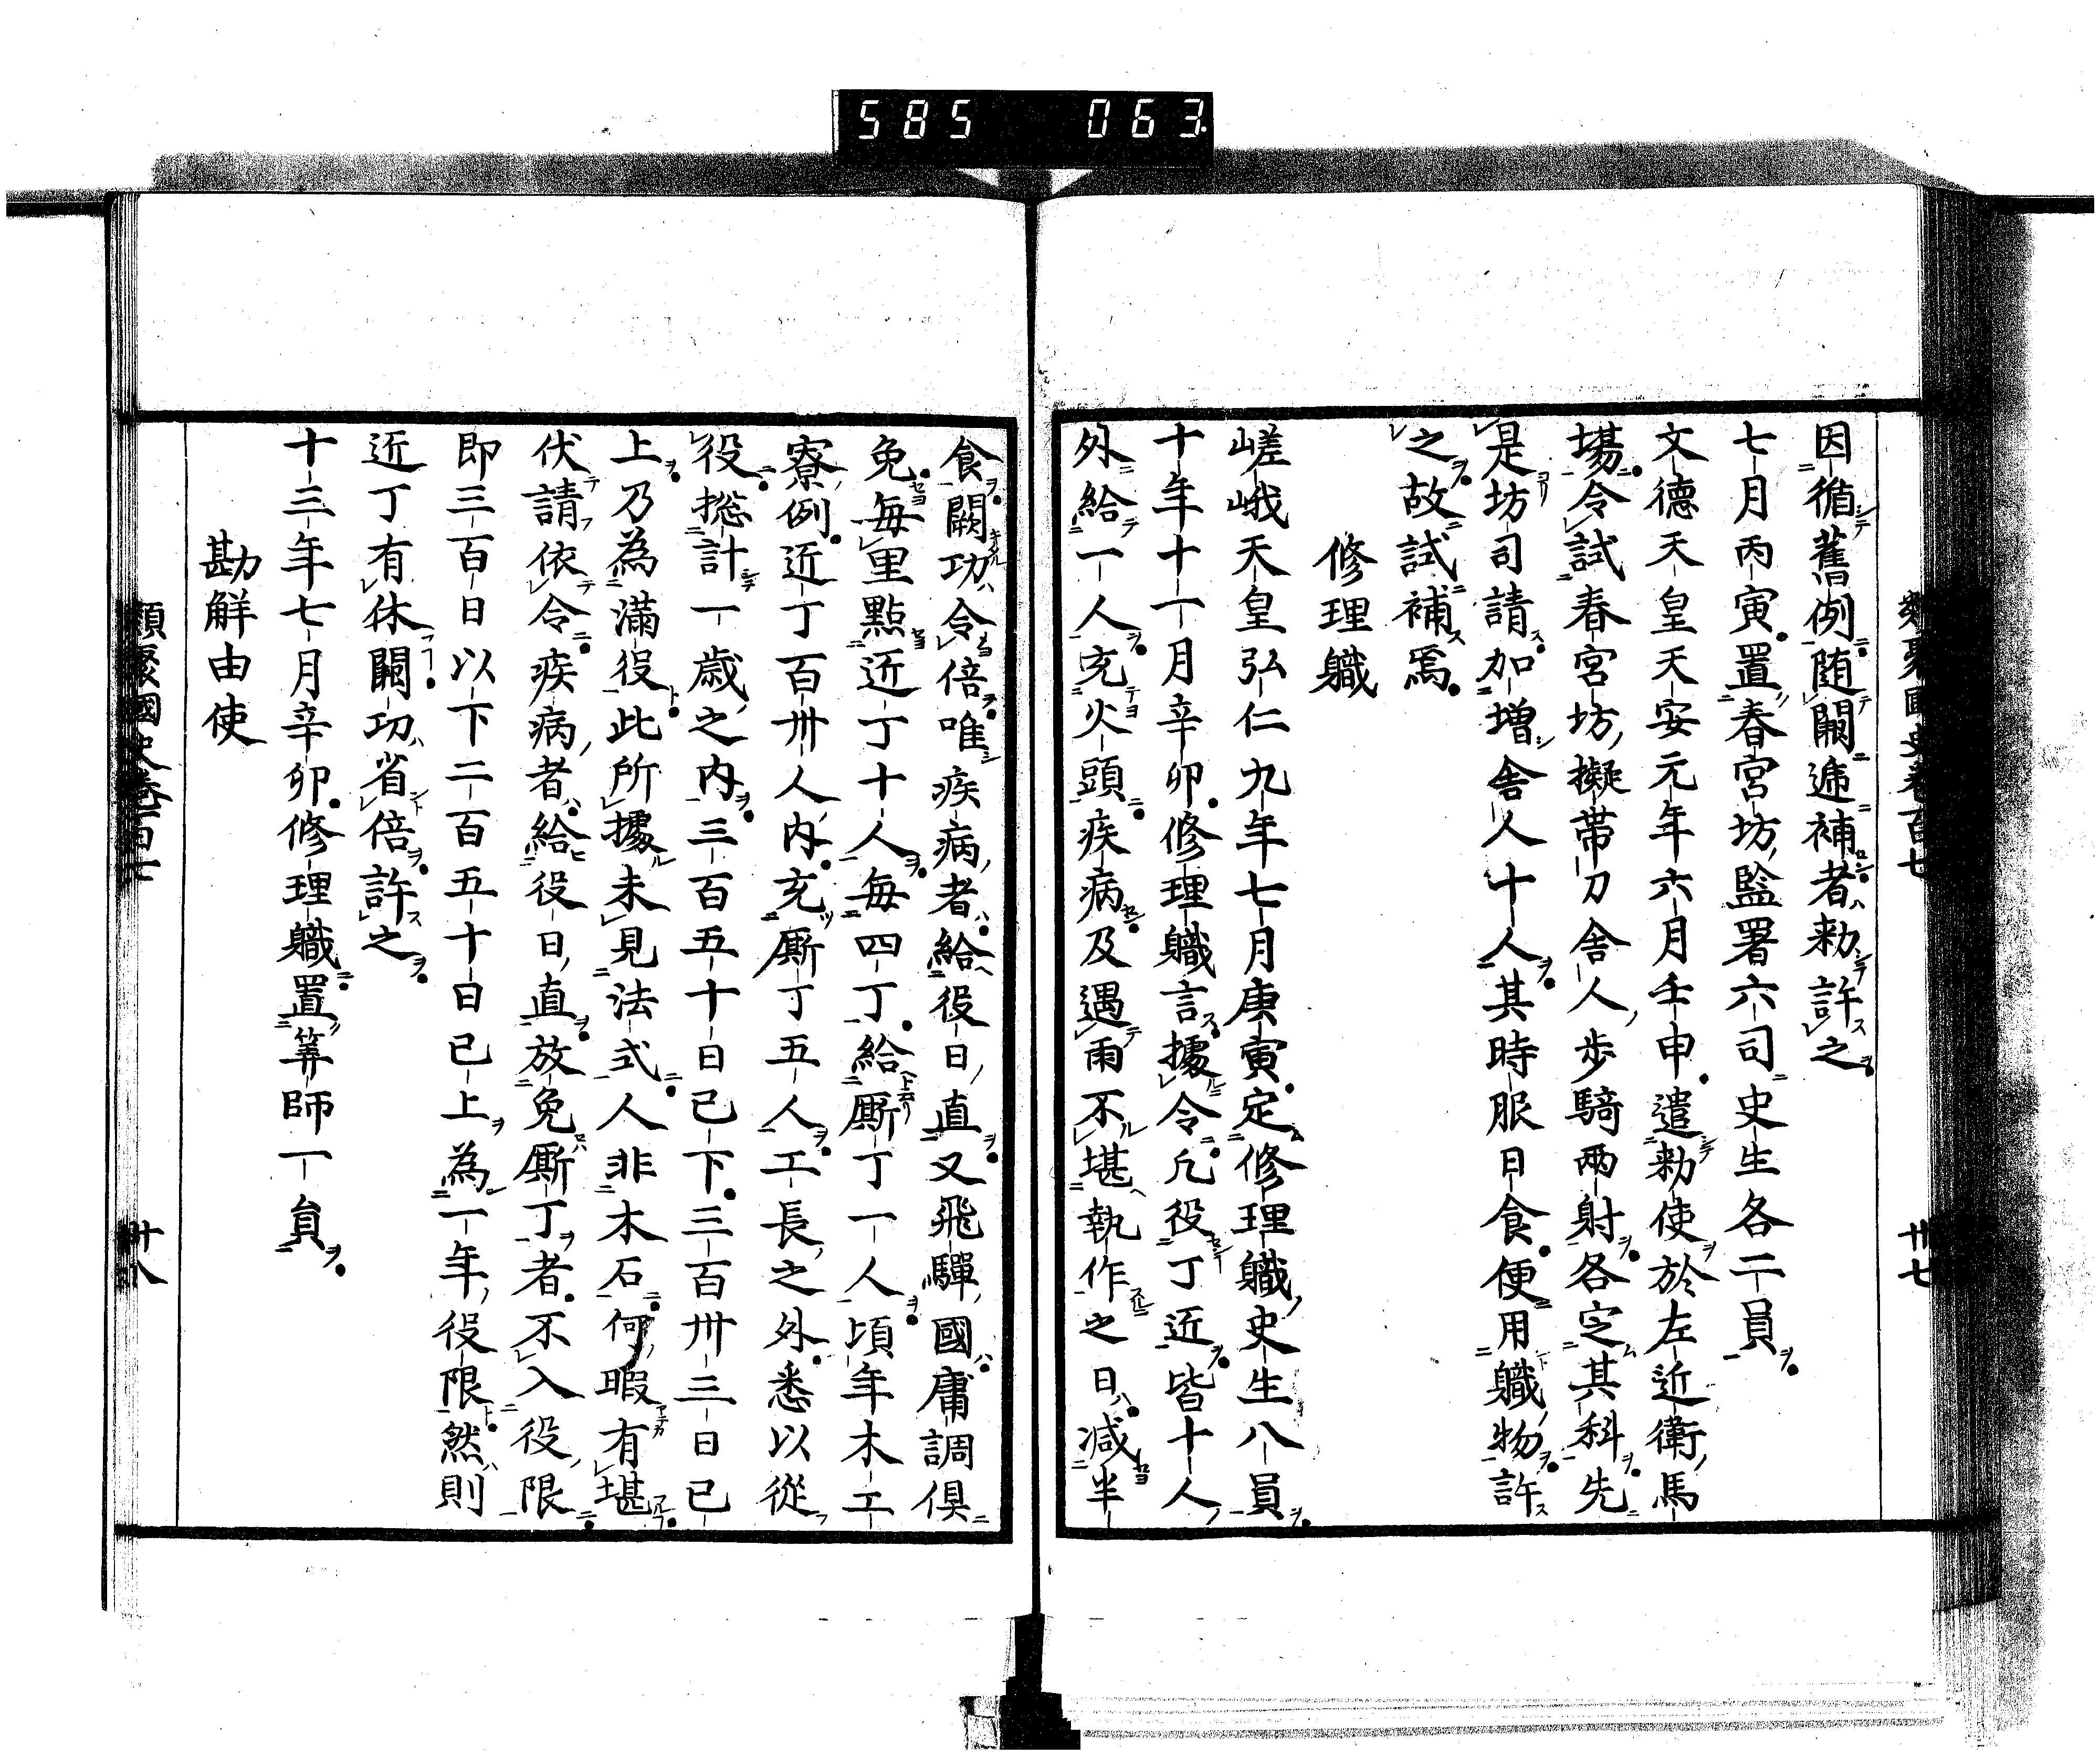 585 063
類聚國史卷百七 卅七
因循舊例隨闕遞補者勅許之
七月丙寅置春宮坊監署六司史生各二員
文德天皇天安元年六月壬申遣勅使於左近衛馬
場令試春宮坊擬帶刀舍人步騎兩射各定其科先
是坊司請加增舍人十人其時服日食便用職物許
之故試補焉
修理職
嵯峨天皇弘仁九年七月庚寅定修理職史生八員
十年十一月辛卯修理職言據令凡役丁近皆十人
外給一人充火頭疾病及遇雨不堪執作之日減半
食闕功令倍唯疾病者給役日直又飛驒國庸調俱
免每里點近丁十人每四丁給廝丁一人頃年木工
寮例近丁百卅人內充廝丁五人工長之外悉以從
役摠計一歲之內三百五十日已下三百卅三日已
上乃為滿役此所據未見法式人非木石何暇有堪
伏請依令疾病者給役日直放免廝丁者不入役限
即三百日以下二百五十日已上為一年役限然則
近丁有休闕功省倍許之
十三年七月辛卯修理職置筭師一員
勘解由使
類聚國史卷百七 卅八